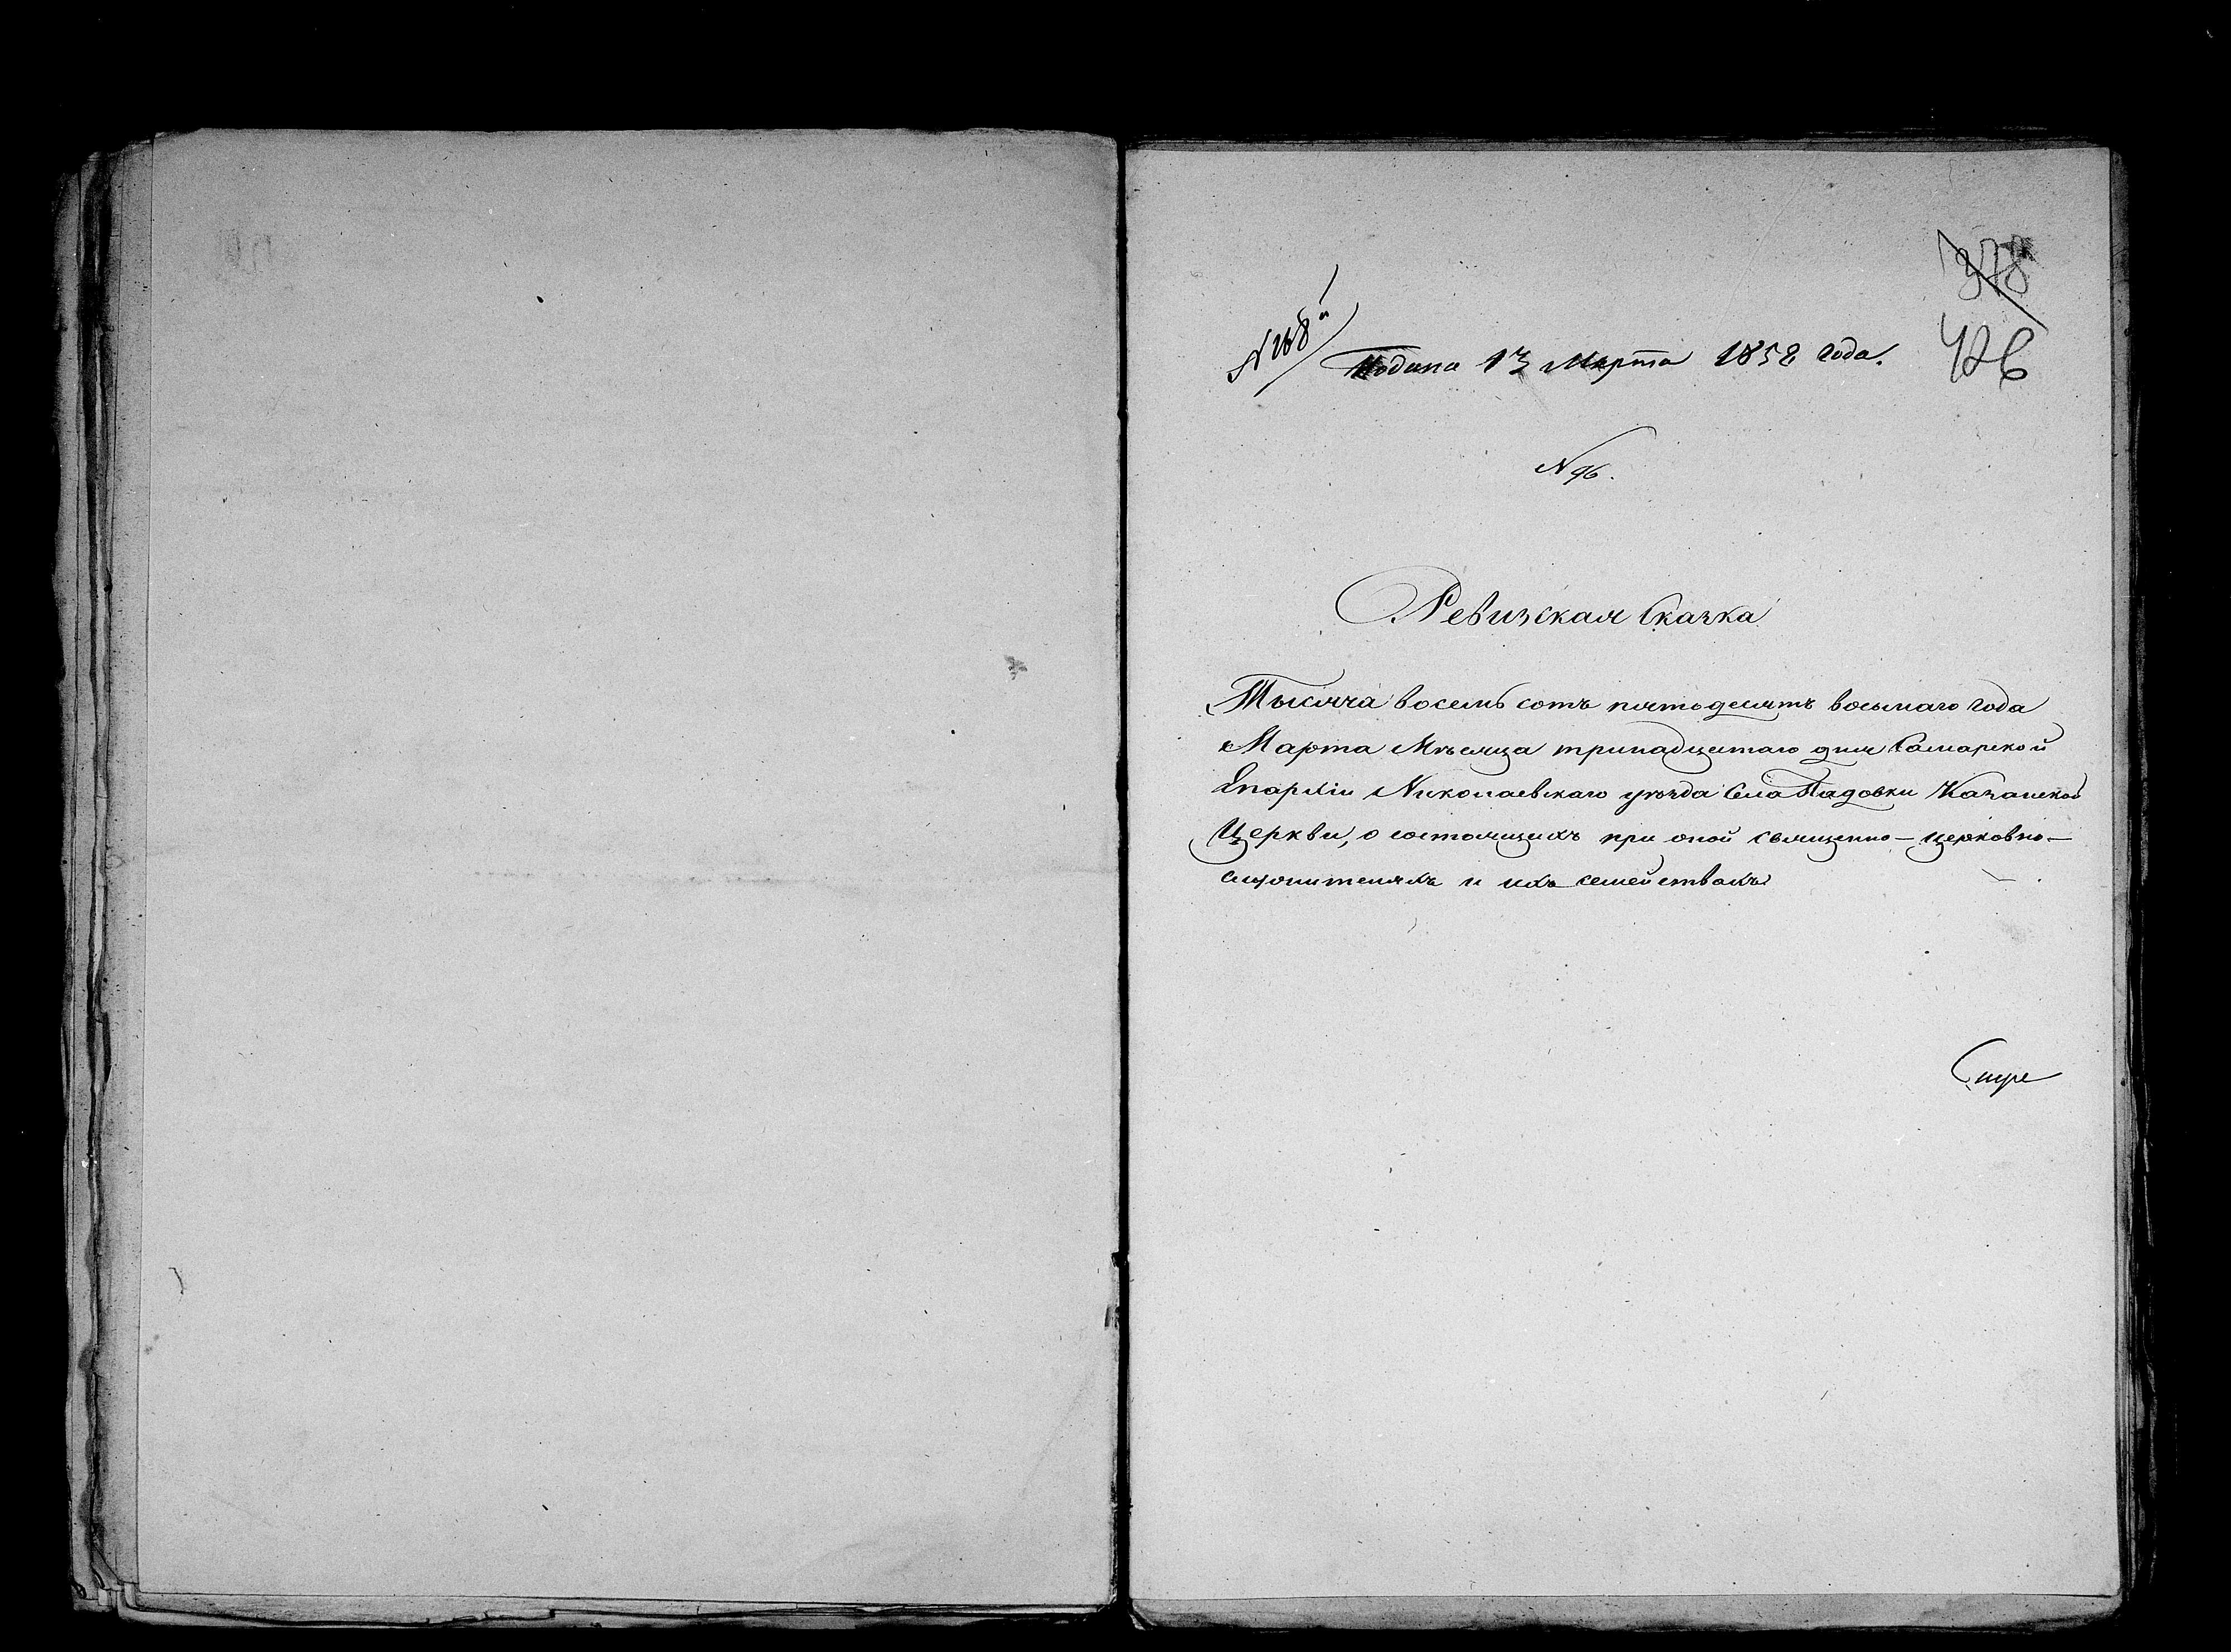 378
426
N 168й
Подана 13 Марта 1858 года.
N 96.
Ревизская Сказка
Тысяча восемь сотъ пятьдесятъ восьмаго года
Марта Мѣсяца тринадцатаго дня Самарской
Епархіи Николаевскаго уѣзда Села Падовки Казанской
Церкви, о состоящихъ при оной священно-церковно-
служителяхъ и ихъ семействахъ